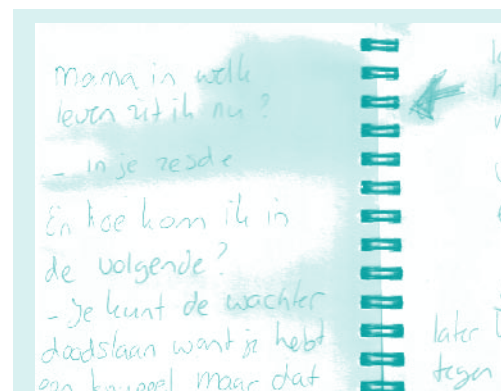 Mama in welk
leven zit ik nu?
- in je zesde
En hoe kom ik in
de volgende?
- Je kunt de wachter
doodslaan want je hebt
een knuppel maar dat
later
tegen